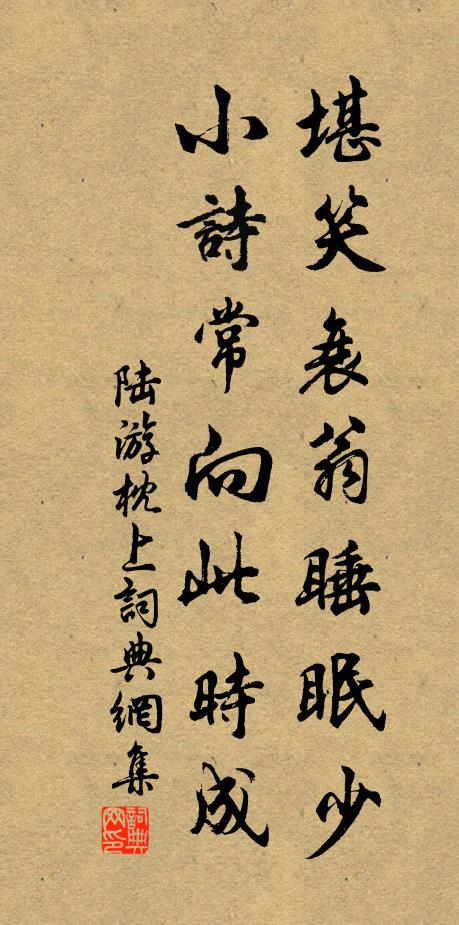 堪笑衰翁睡眠少
小詩常向此時成
陆游枕上詞典網集
詞典網印